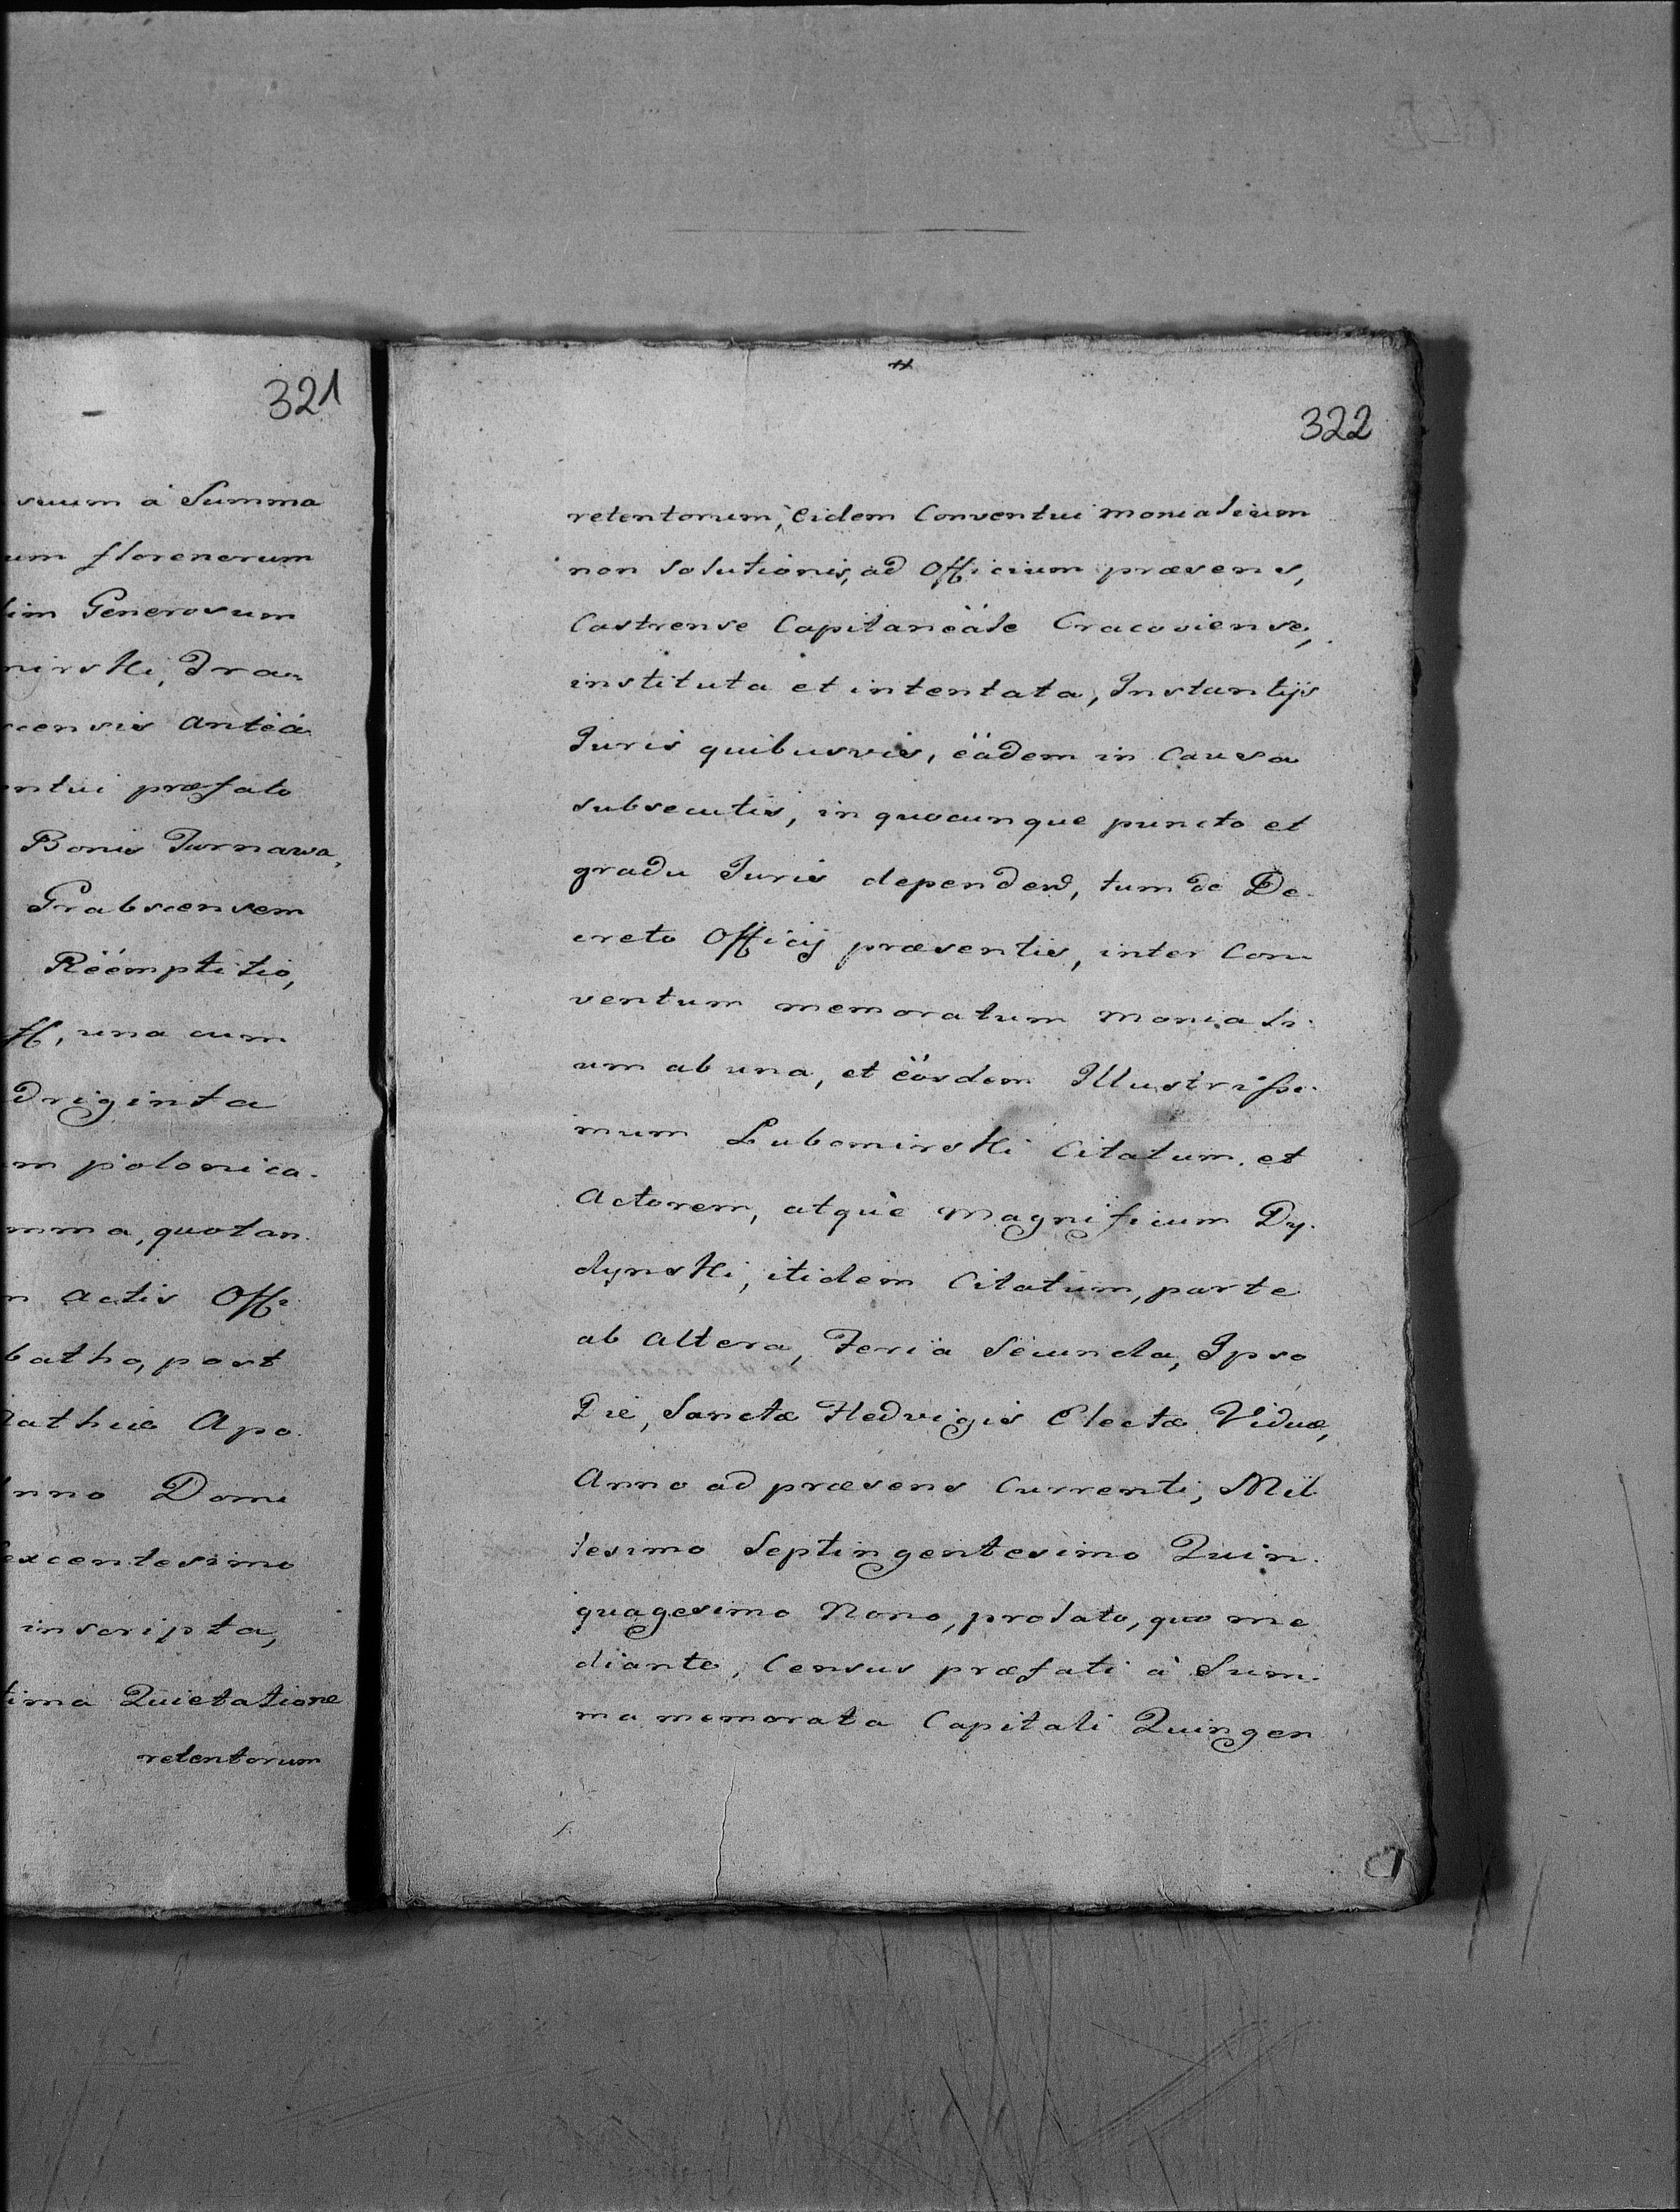 321
suum à Summa
um florenorum
lim Generosum
mirski, Dra
censis anteà
ntui præfato
Bonis Turnawa,
Grabscensem
Rëemptitio,
una cum
driginta
m polonica.
mma, quotan.
n actis Offi
batho, post
Mathiæ Apo.
Anno Domi
excentesimo
inscripta,
tima Quietatione
retentorum
322
retentorum, eidem Conventui monialium
non solutionis, ad Officium præsens,
Castrense Capitaneäle Cracoviense,
instituta et intentata, Instantijs
Juris quibusvis, eädem in Causa
subsecutis, in quocunque puncto et
gradu Juris dependen, tum de De-
creto Officij præsentis, inter Con
ventum memoratum moniali.
um ab una, et eösdem Illustrissi.
mum Lubomirski Citatum et
Actorem, atquè magnificum Dy.
dynski, itidem Citatum, parte
ab altera, Feria Secunda, Ipso
Die, Sanctæ Hedvigis Electæ Viduæ,
Anno ad præsens Currenti, Mil
lesimo Septingentesimo Quin.
quagesimo Nono, prolato, quo me
diante, Census præfati à Sum.
ma memorata Capitali Quingen